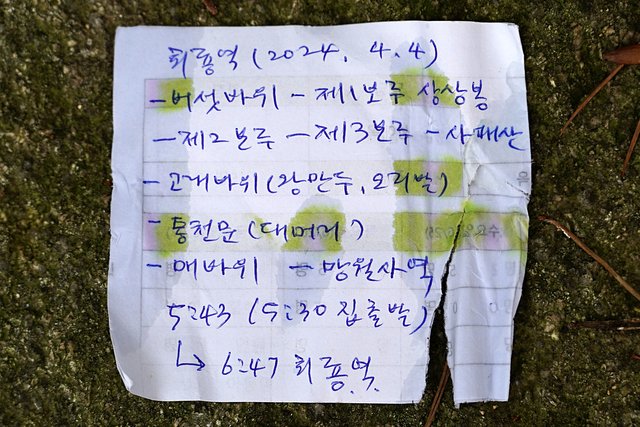 회룡역 (2024. 4. 4)
- 버섯바위 - 제1보루 상상봉
- 제2보루 - 제3보루 - 사패산
- 고개바위 (왕만두, 오리발)
- 통천문 (대머리)
- 매바위 - 망월사역
5:43 (5:30 집출발)
↳ 6:47 회룡역